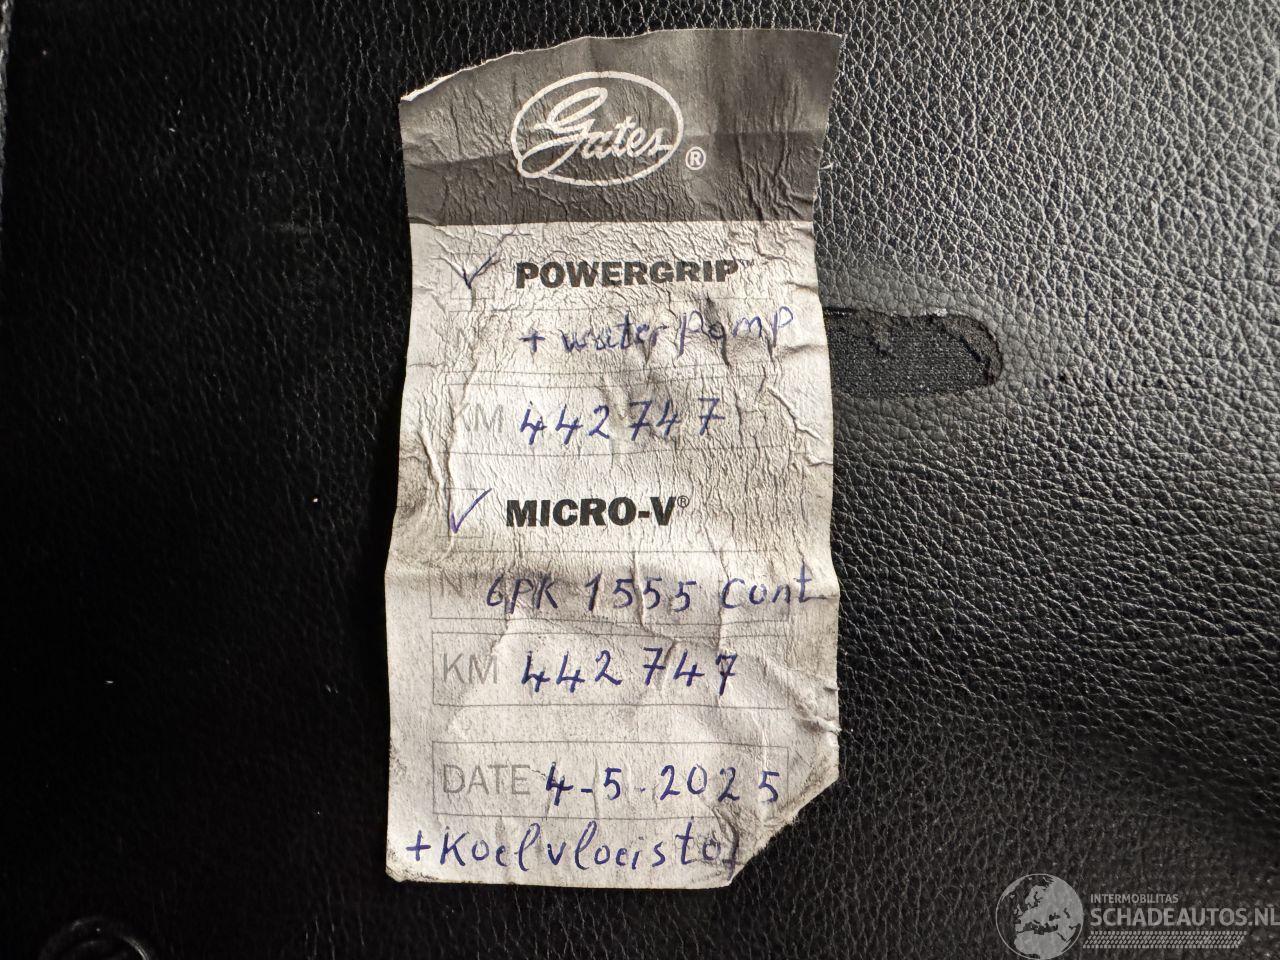 Gates ®
POWERGRIP™
N° + waterpomp
KM 442747
MICRO-V®
N° 6PK 1555 Cont
KM 442747
DATE 4-5-2025
+ Koelvloeistof
INTERMOBILITAS
SCHADEAUTOS.NL